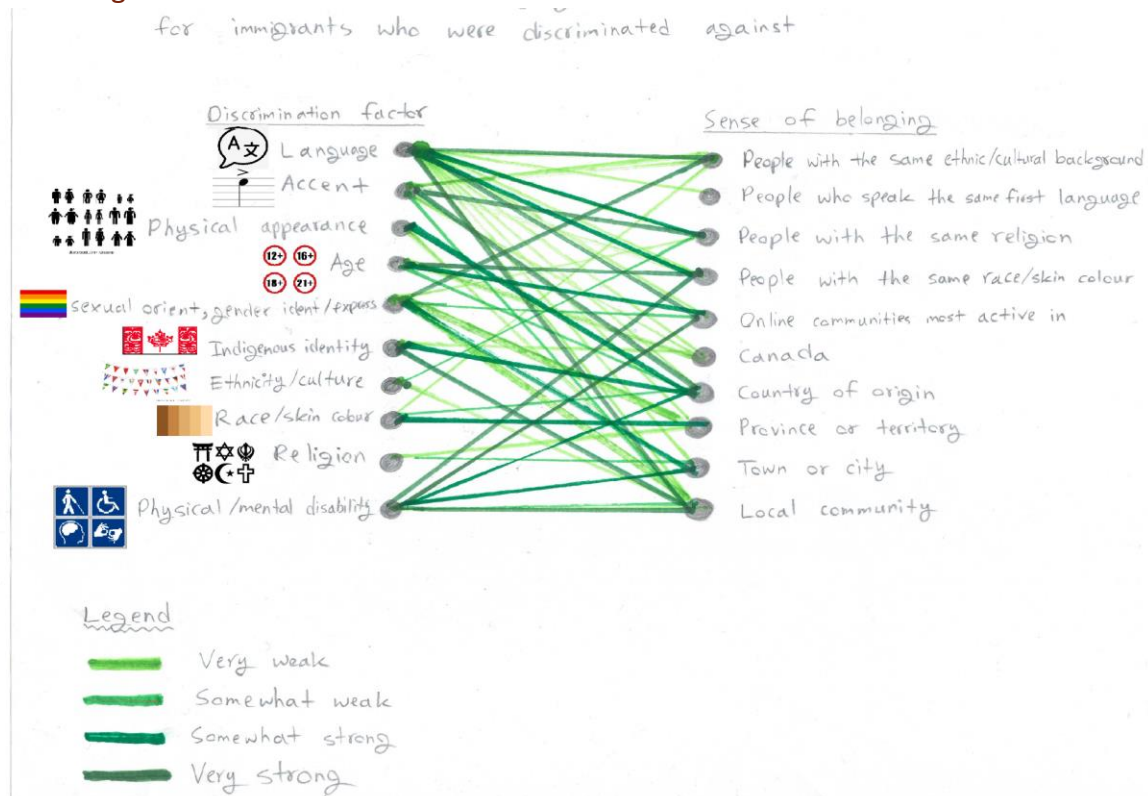 for immigrants who were discriminated against
Discrimination factor
Language
Accent
Physical appearance
12+ 16+
Age
18+ 21+
sexual orient, gender ident/express
Indigenous identity
Ethnicity/culture
Race/skin colour
Religion
Physical/mental disability
Sense of belonging
People with the same ethnic/cultural background
People who speak the same first language
People with the same religion
People with the same race/skin colour
Online communities most active in
Canada
Country of origin
Province or territory
Town or city
Local community
Legend
Very weak
Somewhat weak
Somewhat strong
Very strong